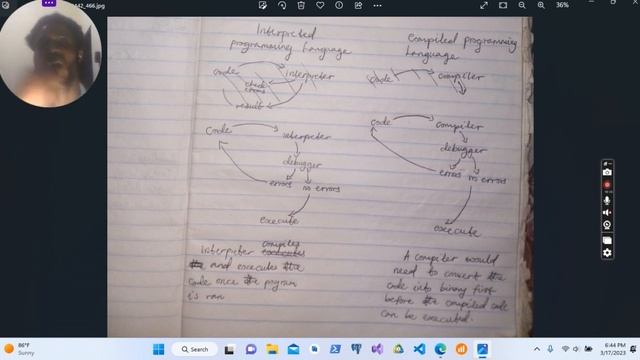 442_466.jpg
36%
Interpreted
programming language
code
interpreter
check
errors
result
code
interpreter
debugger
errors no errors
execute
compiles
Interpreter executes
the and executes the
code once the program
is ran
Compiled programming
Language
Code
compiler
code
compiler
debugger
errors no errors
execute
A compiler would
need to convert the
code into binary first
before the compiled code
can be executed.
86°F
Sunny
Search
6:44 PM
3/17/2023